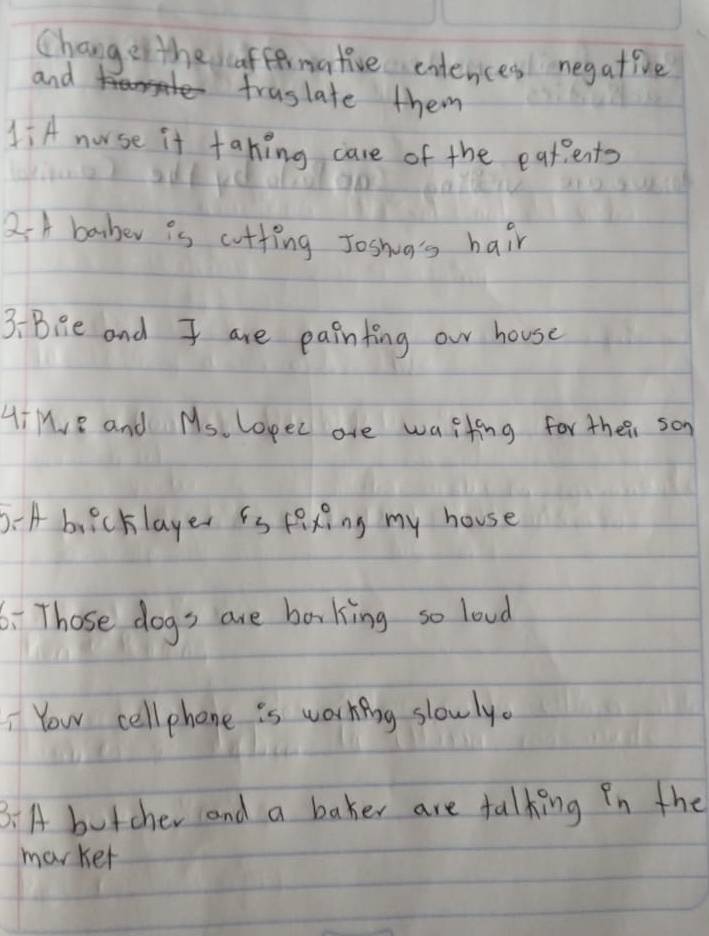 Change the affermative entences negative
and traslate them
1.- A nurse it taking care of the patients
2.- A barber is cutting Joshua's hair
3.- Brie and I are painting our house
4.- Mr. and Ms. Lopez are waiting for their son
5.- A bricklayer is fixing my house
6.- Those dogs are barking so loud
- Your cellphone is working slowly.
8.- A butcher and a baker are talking in the
market